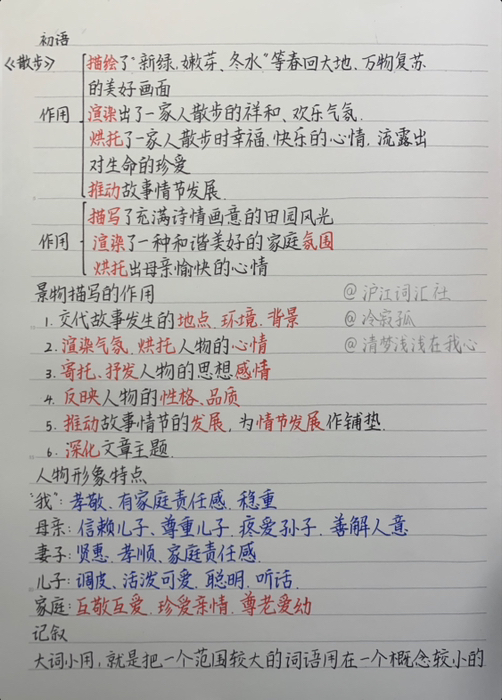 初语
《散步》
描绘了“新绿、嫩芽、冬水”等春回大地、万物复苏
的美好画面
作用
渲染出了一家人散步的祥和、欢乐气氛.
烘托了一家人散步时幸福、快乐的心情,流露出
对生命的珍爱
推动故事情节发展.
描写了充满诗情画意的田园风光
作用
渲染了一种和谐美好的家庭氛围
烘托出母亲愉快的心情
景物描写的作用
@沪江词汇社
1. 交代故事发生的地点、环境、背景
@冷寂孤
2. 渲染气氛、烘托人物的心情
@清梦浅浅在我心
3. 寄托、抒发人物的思想感情
4. 反映人物的性格、品质
5. 推动故事情节的发展,为情节发展作铺垫.
6. 深化文章主题.
人物形象特点
“我”: 孝敬、有家庭责任感、稳重
母亲: 信赖儿子、尊重儿子、疼爱孙子、善解人意
妻子: 贤惠、孝顺、家庭责任感.
儿子: 调皮、活泼可爱、聪明、听话.
家庭: 互敬互爱、珍爱亲情、尊老爱幼
记叙
大词小用,就是把一个范围较大的词语用在一个概念较小的